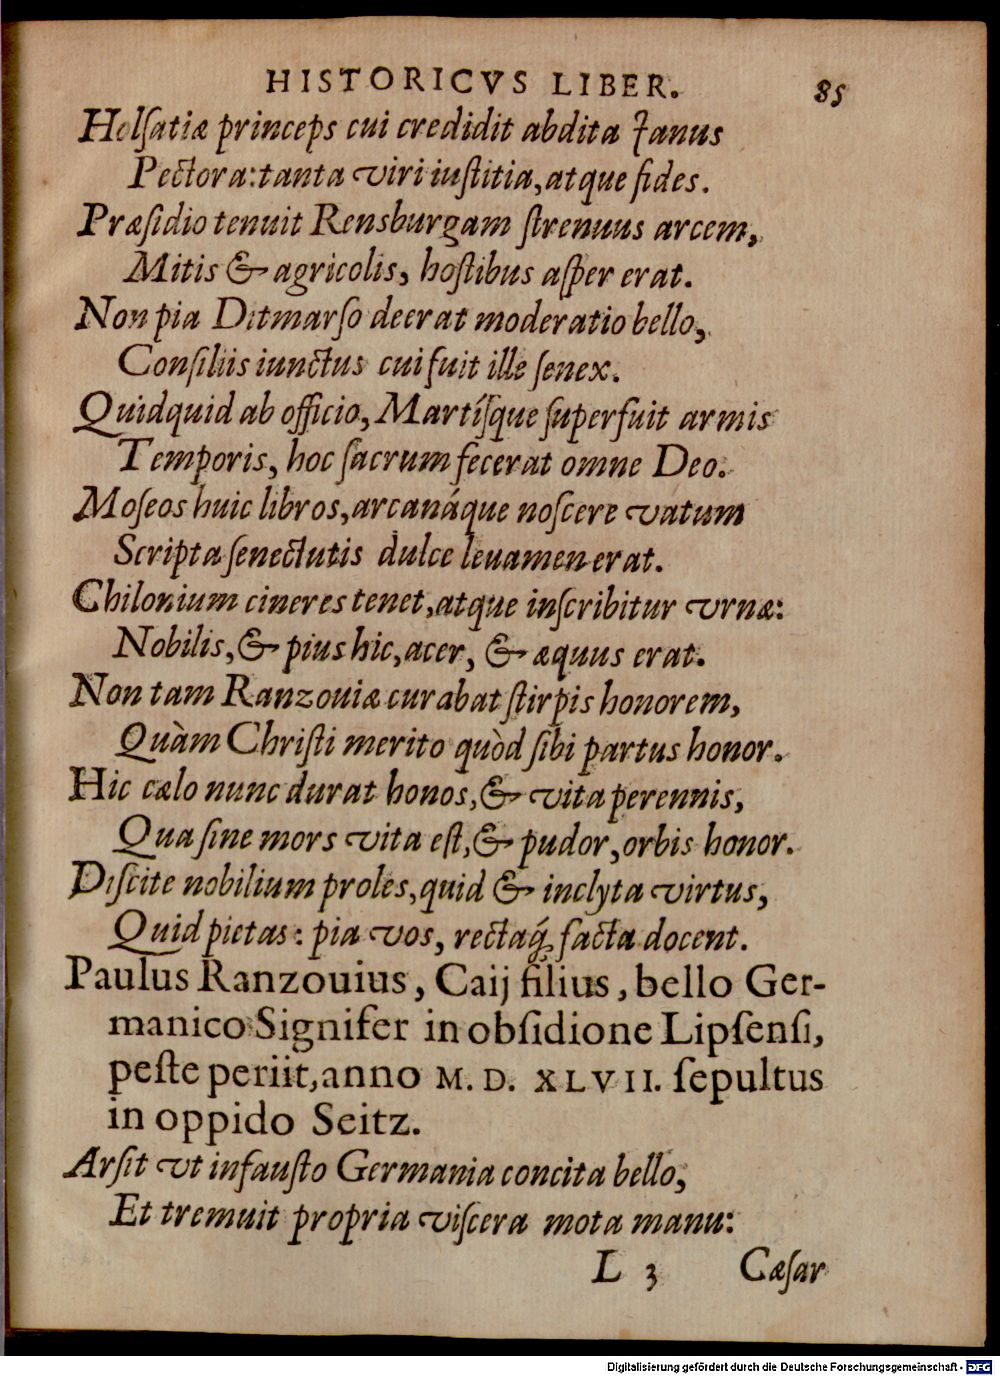 HISTORICVS LIBER. 85
Holſatiæ princeps cui credidit abdita Janus
Pectora: tanta viri iuſtitia, atque fides.
Præſidio tenuit Rensburgam ſtrenuus arcem,
Mitis & agricolis, hoſtibus aſper erat.
Non pia Ditmarſo deerat moderatio bello,
Conſiliis iunctus cui fuit ille ſenex.
Quidquid ab officio, Martíſque ſuperfuit armis
Temporis, hoc ſacrum fecerat omne Deo.
Moſeos huic libros, arcanáque noſcere vatum
Scripta ſenectutis dulce leuamen erat.
Chilonium cineres tenet, atque inſcribitur vrnæ:
Nobilis, & pius hic, acer, & æquus erat.
Non tam Ranzouiæ curabat ſtirpis honorem,
Quàm Chriſti merito quòd ſibi partus honor.
Hic cælo nunc durat honos, & vita perennis,
Qua ſine mors vita eſt, & pudor, orbis honor.
Diſcite nobilium proles, quid & inclyta virtus,
Quid pietas: pia vos, rectaq́; facta docent.
Paulus Ranzouius, Caij filius, bello Ger-
manico Signifer in obſidione Lipſenſi,
peſte periit, anno M. D. XLVII. ſepultus
in oppido Seitz.
Arſit vt infauſto Germania concita bello,
Et tremuit propria viſcera mota manu:
L 3 Cæſar
Digitalisierung gefördert durch die Deutsche Forschungsgemeinschaft - DFG